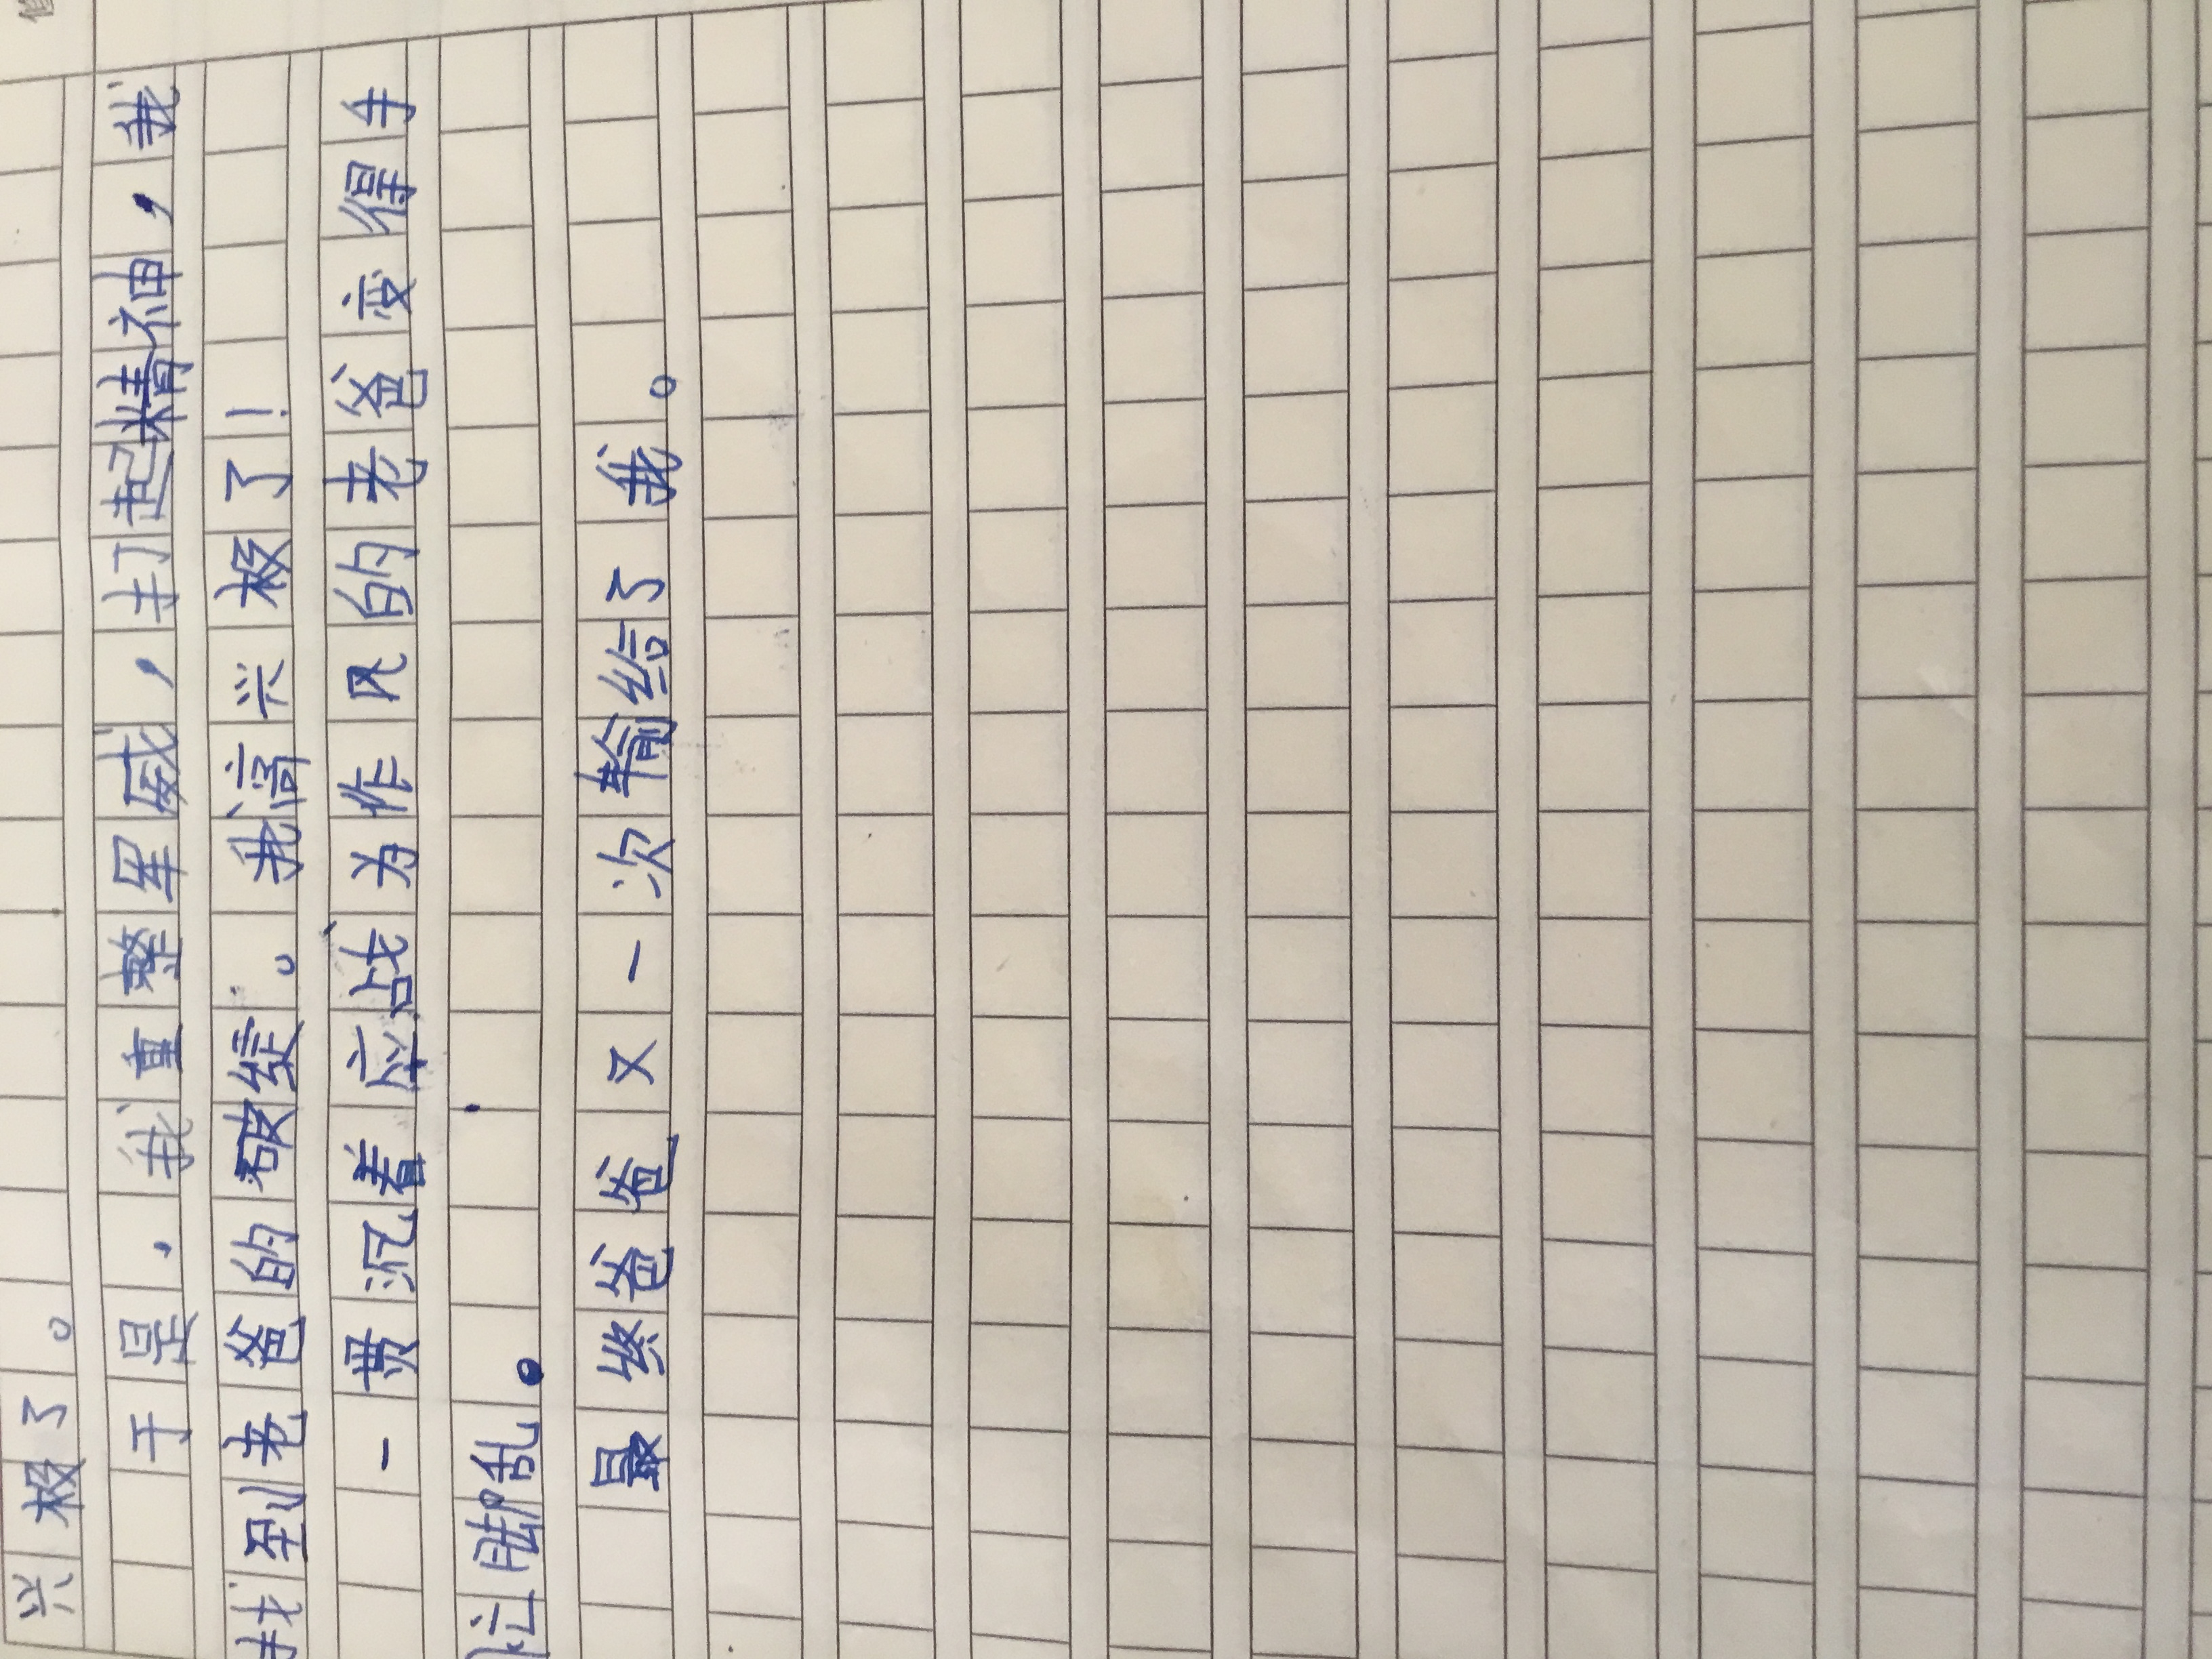 兴极了。
于是，我重整军威，打起精神，我
找到老爸的破绽。我高兴极了！
一贯沉着应战为作风的老爸变得手
忙脚乱。
最终爸爸又一次输给了我。